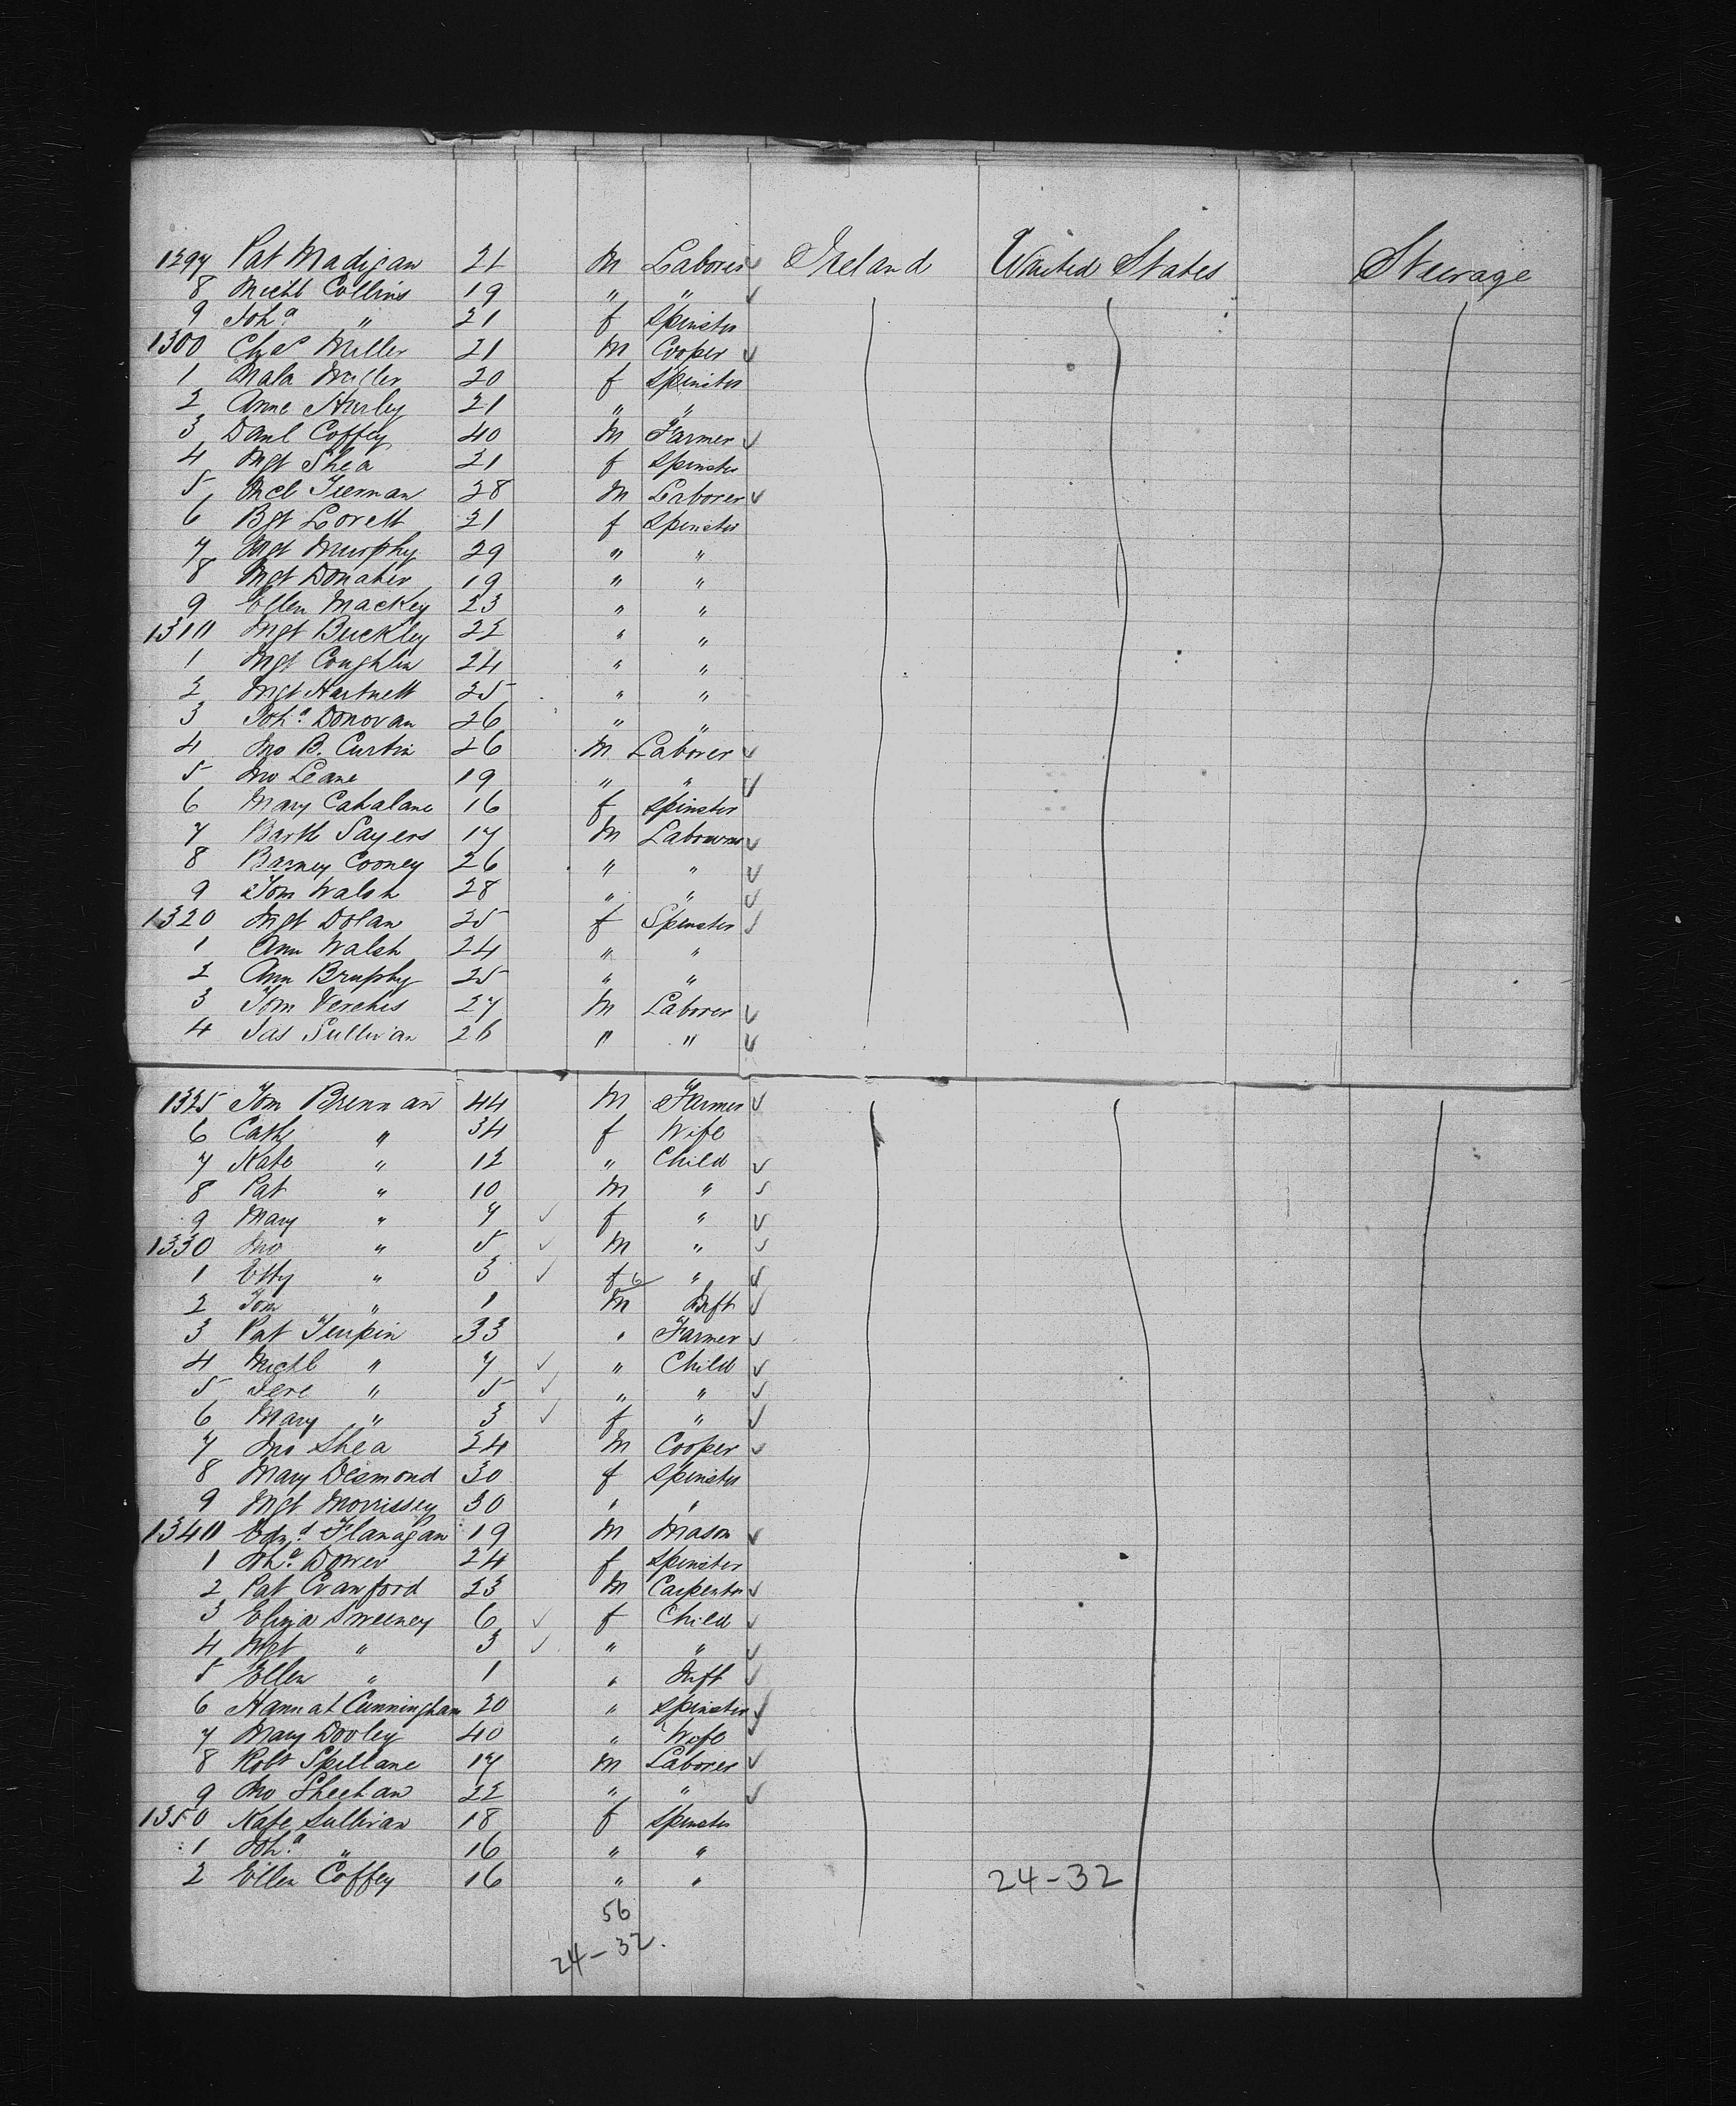 1297 Pat Madigan 21 M Laborer ✓ Ireland United States Steerage
8 Michl Collins 19 " " ✓
9 Joh.a " 21 f Spinster
1300 Chas Miller 21 M Cooper ✓
1 Miller 20 f Spinster
2 Anne Hurley 21 " "
3 Danl Coffey 40 M Farmer ✓
4 Mgt Shea 21 f Spinster
5 Mcl Tiernan 28 M Laborer ✓
6 Bgt Lovett 21 f Spinster
7 Mgt Murphy 29 " "
8 Mgt Donaher 19 " "
9 Ellen Mackey 23 " "
1310 Mgt Buckley 22 " "
1 Mgt Coughlin 24 " "
2 Mgt Hartnett 25 " "
3 Joh.a Donovan 26 " "
4 Jno B. Curtin 26 M Laborer ✓
5 Jno Leane 19 " " ✓
6 Mary Cahalane 16 f Spinster
7 Barth Sayers 17 M Labourer ✓
8 Barney Cooney 26 " " ✓
9 Tom Walsh 28 " " ✓
1320 Mgt Dolan 25 f Spinster ✓
1 Ann Walsh 24 " "
2 Ann Bruphy 25 " "
3 Tom 27 M Laborer ✓
4 Jas Sullivan 26 " " ✓
1325 Tom Brennan 44 M Farmer ✓
6 Cath " 34 f Wife
7 Kate " 12 " Child ✓
8 Pat " 10 M " ✓
9 Mary " 7 ✓ f " ✓
1330 Jno " 5 ✓ M " ✓
1 Etty " 3 ✓ f 6 " ✓
2 Tom " 1 M Inft ✓
3 Pat Turpin 33 " Farmer ✓
4 Michl " 7 ✓ " Child ✓
5 Jere " 5 ✓ " " ✓
6 Mary " 3 ✓ f " ✓
7 Jno Shea 24 M Cooper ✓
8 Mary Desmond 30 f Spinster
9 Mgt Morrissey 30 " "
1340 Edw.d Flanagan 19 M Mason ✓
1 Joh.a Dower 24 f Spinster
2 Pat Crawford 23 M Carpenter ✓
3 Eliza Sweeney 6 ✓ f Child ✓
4 Mgt " 3 ✓ " " ✓
5 Ellen " 1 " Inft ✓
6 Hannah Cunningham 20 " Spinster ✓
7 Mary Dooley 40 " Wife ✓
8 Robt Spillane 17 M Laborer ✓
9 Jno Sheehan 22 " " ✓
1350 Kate Sullivan 18 f Spinster
1 Joh.a " 16 " "
2 Ellen Coffey 16 " " 24-32
56
24-32.